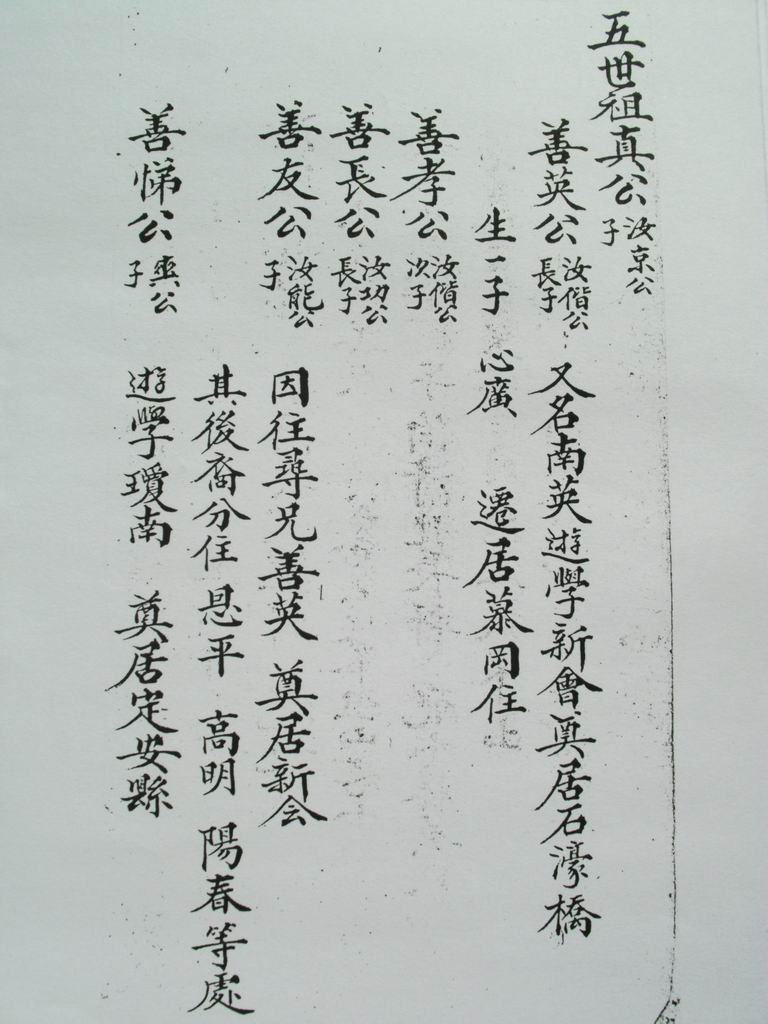 五世祖真公 汝京公子
善英公 汝偕公長子 又名南英遊學新會奠居石濠橋
生一子 心廣 遷居慕岡住
善孝公 汝偕公次子
善長公 汝功公長子
善友公 汝能公子 因往尋兄善英 奠居新会
其後裔分住 恩平 高明 陽春等處
善悌公 爽公子 遊學瓊南 奠居定安縣